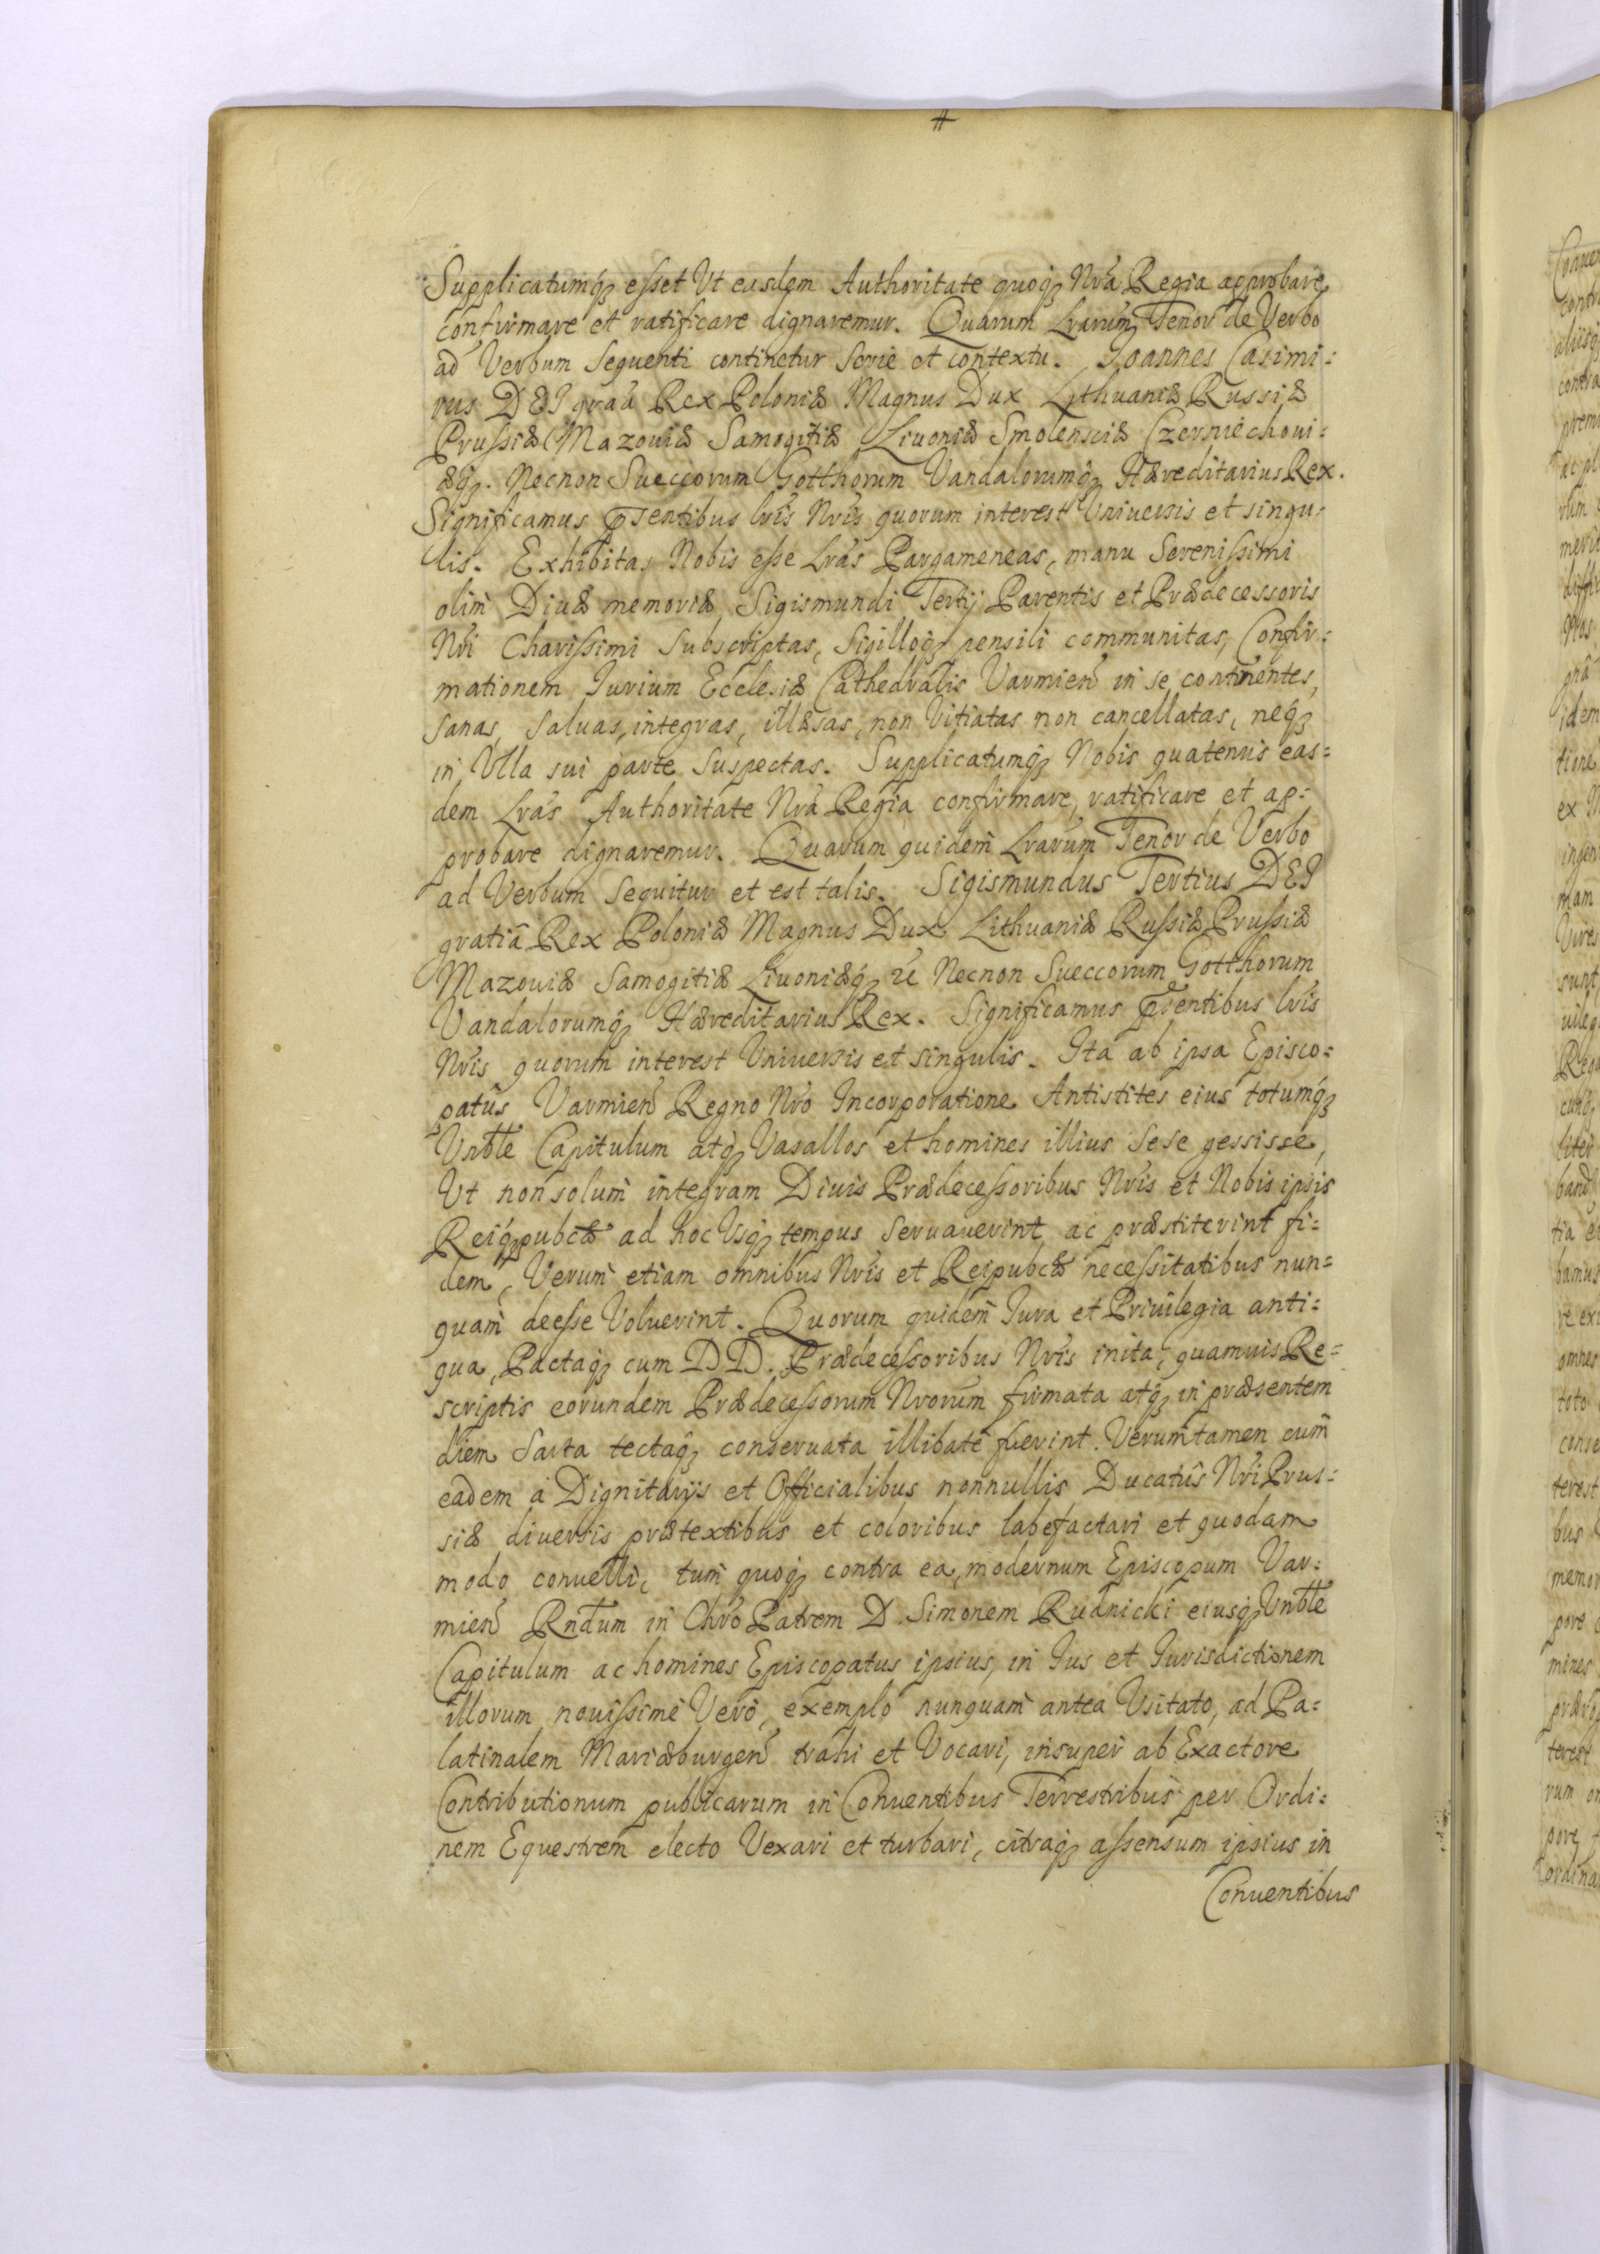 Supplicatumq, esset Vt easdem Authoritate quoq, Nrã Regia approbare,
confirmare et ratificare dignaremur. Quarum Lrarum Tenor de Verbo
ad Verbum sequenti continetur serie et contextu. Joannes Casimi=
rus DEI graã Rex Poloniæ Magnus Dux Lithuaniæ Russiæ
Prussiæ Mazouiæ Samogitiæ Liuoniæ Smolensciæ Czerniechoui=
æq,. Necnon Sueccorum Gotthorum Vandalorumq, Hæreditarius Rex.
Significamus pñtibus lris Nris quorum interest Vniuersis et singu=
lis. Exhibitas Nobis esse Lras Pargameneas, manu Serenissimi
olim Diuæ memoriæ Sigismundi Tertij Parentis et Prædecessoris
Nri Charissimi subscriptas, Sigilloq, pensili communitas, Confir=
mationem Jurium Ecclesiæ Cathedralis Varmien in se continentes,
sanas, saluas, integras, illæsas, non Vitiatas non cancellatas, neq,
in Vlla sui parte suspectas. Supplicatumq, Nobis quatenus eas=
dem Lras Authoritate Nrã Regia confirmare, ratificare et ap=
probare dignaremur. Quarum quidem Lrarum Tenor de Verbo
ad Verbum sequitur et est talis. Sigismundus Tertius DEI
gratiâ Rex Poloniæ Magnus Dux Lithuaniæ Russiæ Prussiæ
Mazouiæ Samogitiæ Liuoniæq, Necnon Sueccorum Gotthorum
Vandalorumq, Hæreditarius Rex. Significamus pñtibus lris
Nris quorum interest Vniuersis et singulis. Ita ab ipsa Episco=
patûs Varmien Regno Nro Incorporatione Antistites eius totumq,
Vnble Capitulum atq, Vasallos et homines illius sese gessisse,
Vt non solum integram Diuis Prædecessoribus Nris et Nobis ipsis
Reiq,pubcæ ad hoc Vsq, tempus seruauerint ac præstiterint fi=
dem, Verum etiam omnibus Nris et Reipubcæ necessitatibus nun=
quam deesse Voluerint. Quorum quidem Jura et Priuilegia anti=
qua, Pactaq, cum DD. Prædecessoribus Nris inita, quamuis Re=
scriptis eorundem Prædecessorum Nrorum firmata atq, in præsentem
diem Sarta tectaq, conseruata illibatè fuerint. Veruntamen cum
eadem a Dignitarijs et Officialibus nonnullis Ducatûs Nri Prus=
siæ diuersis prætextibus et coloribus labefactari et quodam
modo conuelli, tum quoq, contra ea, modernum Episcopum Var=
mien Rndum in Chro Patrem D. Simonem Rudnicki eiusq, Vnble
Capitulum ac homines Episcopatus ipsius, in Jus et Jurisdictionem
illorum nouissimè Verò, exemplo nunquam antea Vsitato, ad Pa=
latinalem Mariæburgen trahi et Vocari, insuper ab Exactore
Contributionum publicarum in Conuentibus Terrestribus per Ordi=
nem Equestrem electo Vexari et turbari, citraq, assensum ipsius in
Conuentibus